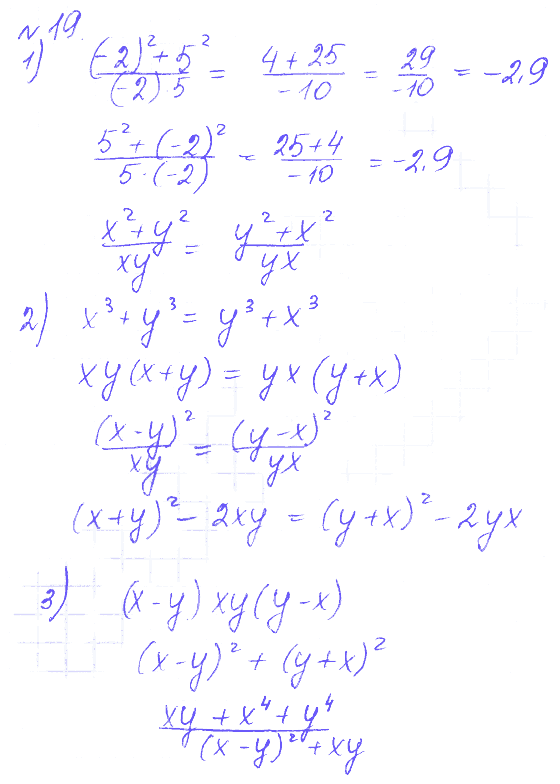 № 19.
1) ((-2)² + 5²)/((-2)·5) = (4 + 25)/(-10) = 29/(-10) = -2,9
(5² + (-2)²)/(5·(-2)) = (25+4)/(-10) = -2,9
(x² + y²)/(xy) = (y² + x²)/(yx)
2) x³ + y³ = y³ + x³
xy(x+y) = yx(y+x)
(x-y)²/(xy) = (y-x)²/(yx)
(x+y)² - 2xy = (y+x)² - 2yx
3) (x-y)xy(y-x)
(x-y)² + (y+x)²
(xy + x⁴ + y⁴)/((x-y)² + xy)